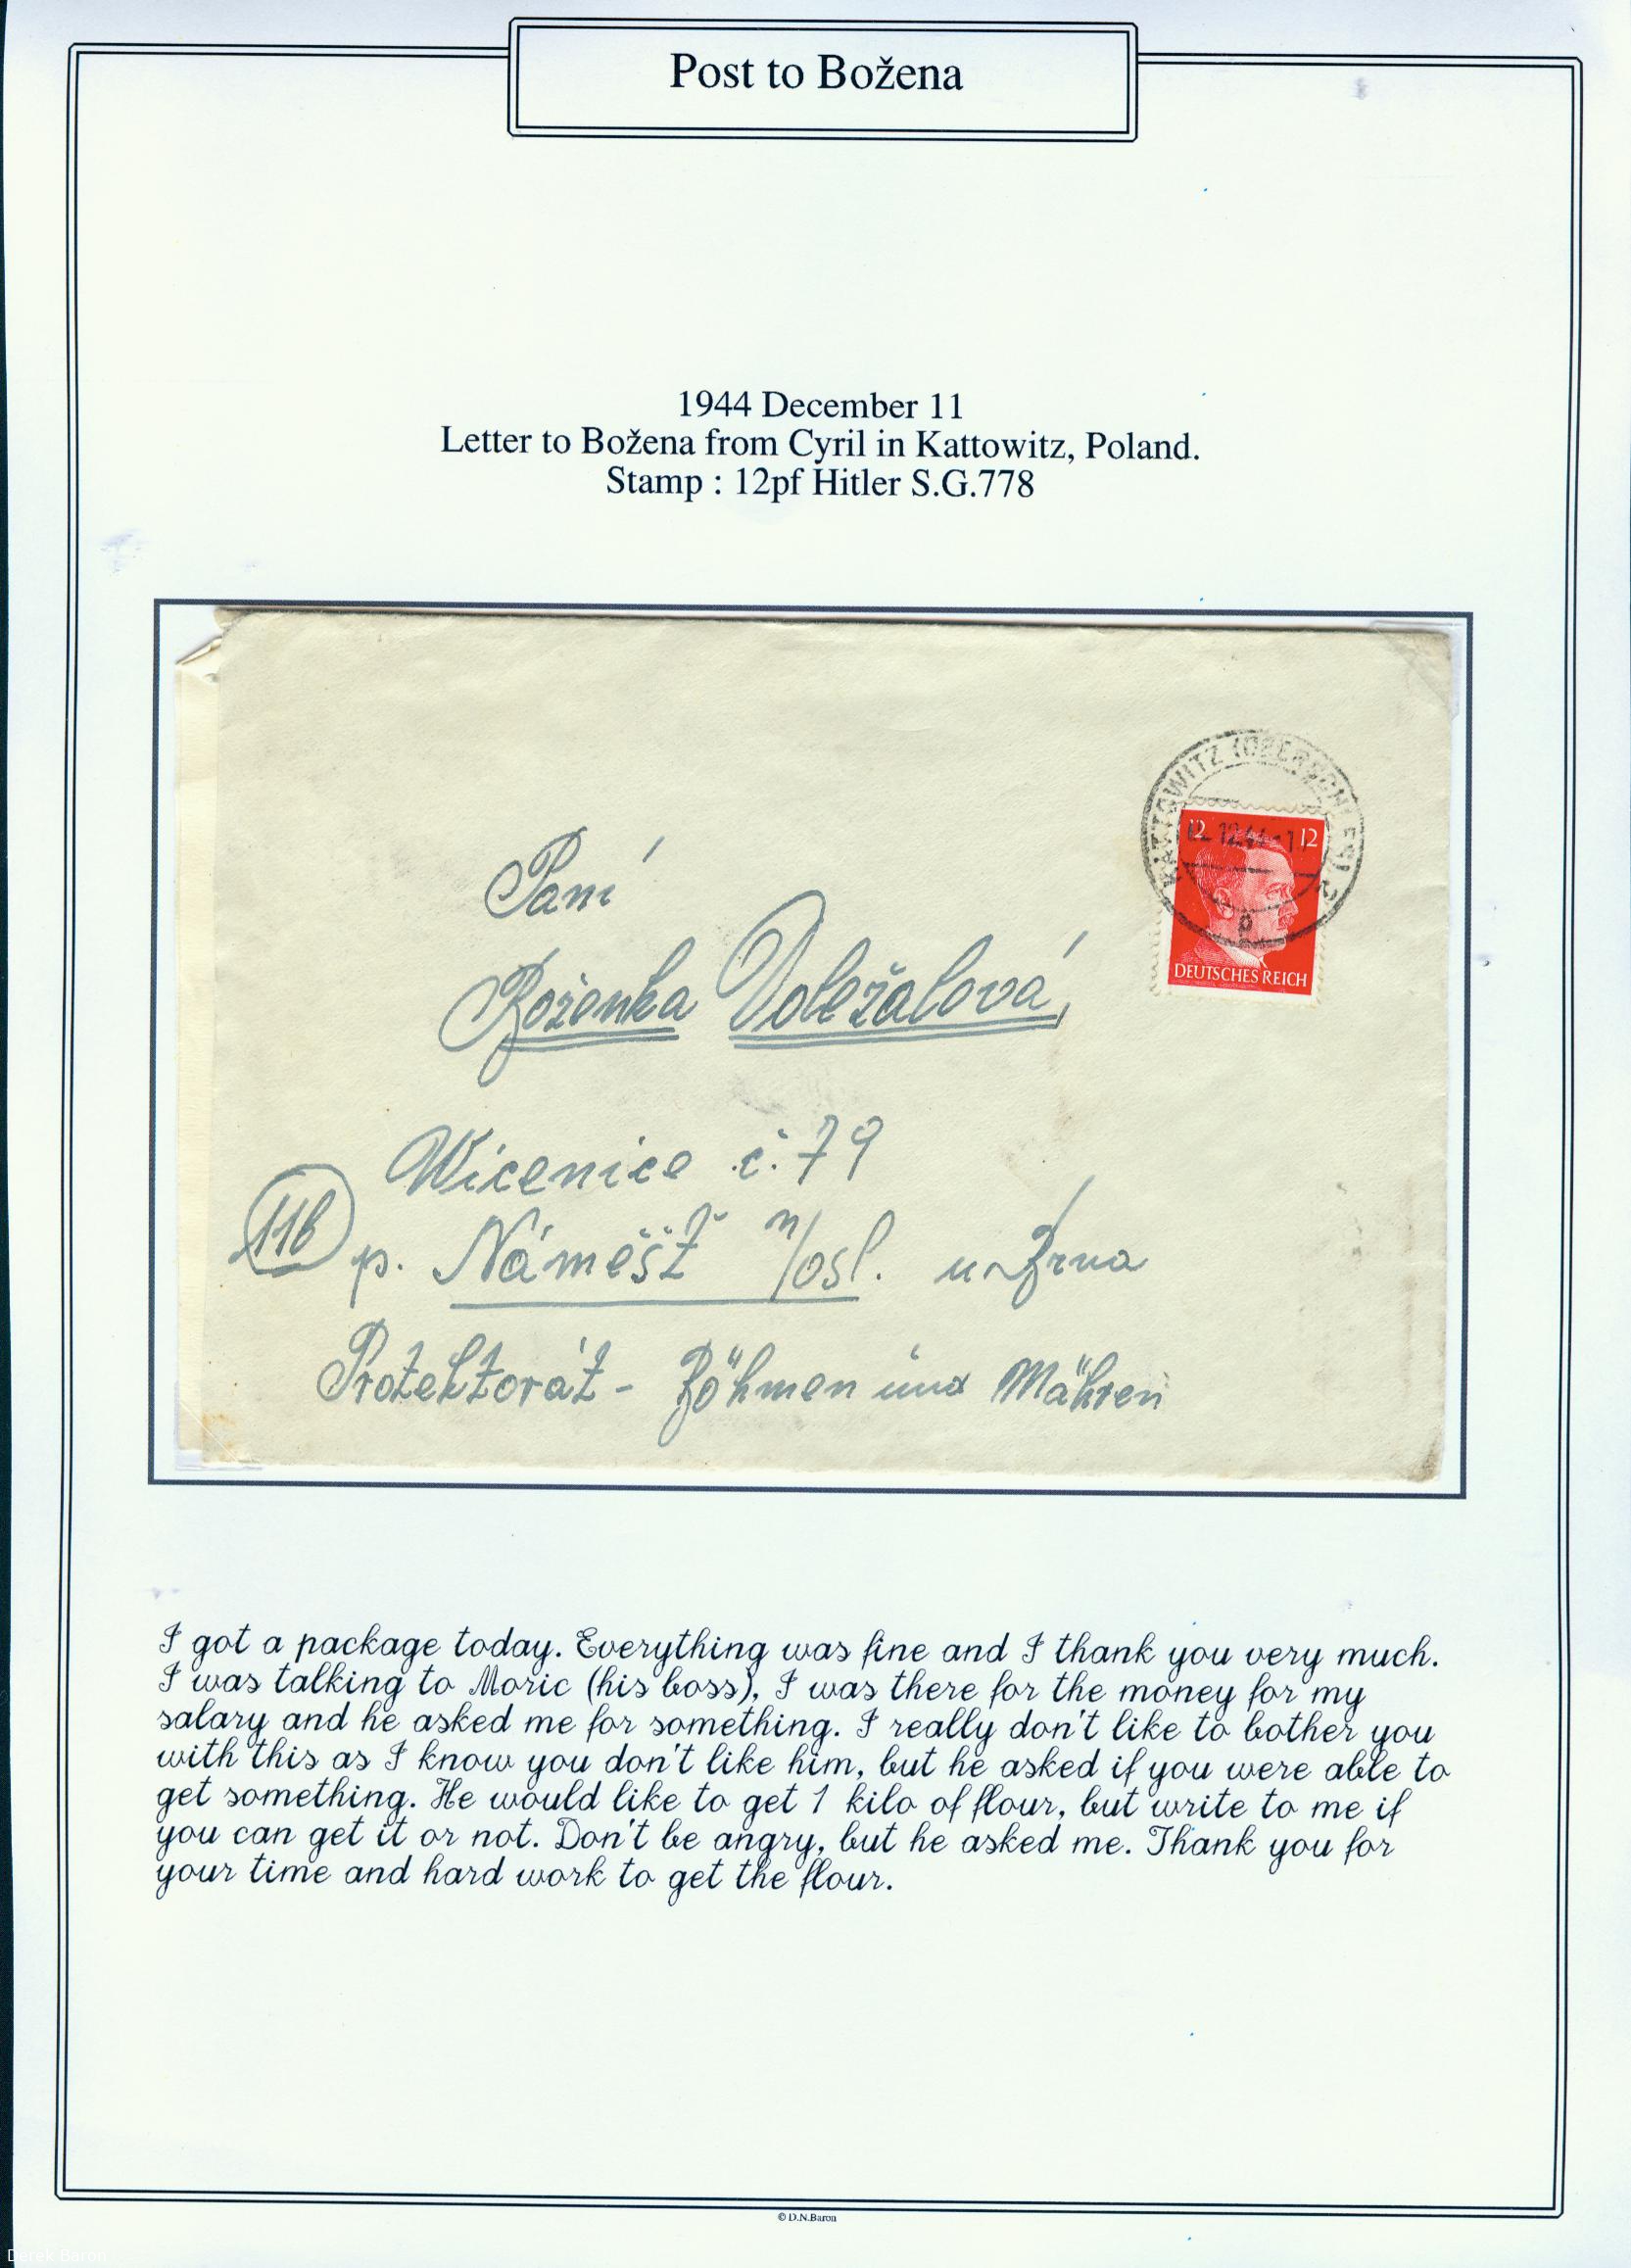 Post to Božena
1944 December 11
Letter to Božena from Cyril in Kattowitz, Poland.
Stamp : 12pf Hitler S.G.778
KATTOWITZ (OBERSCHLES) 2
12 12
12.44
DEUTSCHES REICH
Paní
Boženka Doležalová,
Wicenice č. 79
11b p. Náměšť n/osl. u Brna
Protektorát - Böhmen und Mähren
I got a package today. Everything was fine and I thank you very much.
I was talking to Moric (his boss), I was there for the money for my
salary and he asked me for something. I really don't like to bother you
with this as I know you don't like him, but he asked if you were able to
get something. He would like to get 1 kilo of flour, but write to me if
you can get it or not. Don't be angry, but he asked me. Thank you for
your time and hard work to get the flour.
© D.N.Baron
Derek Baron